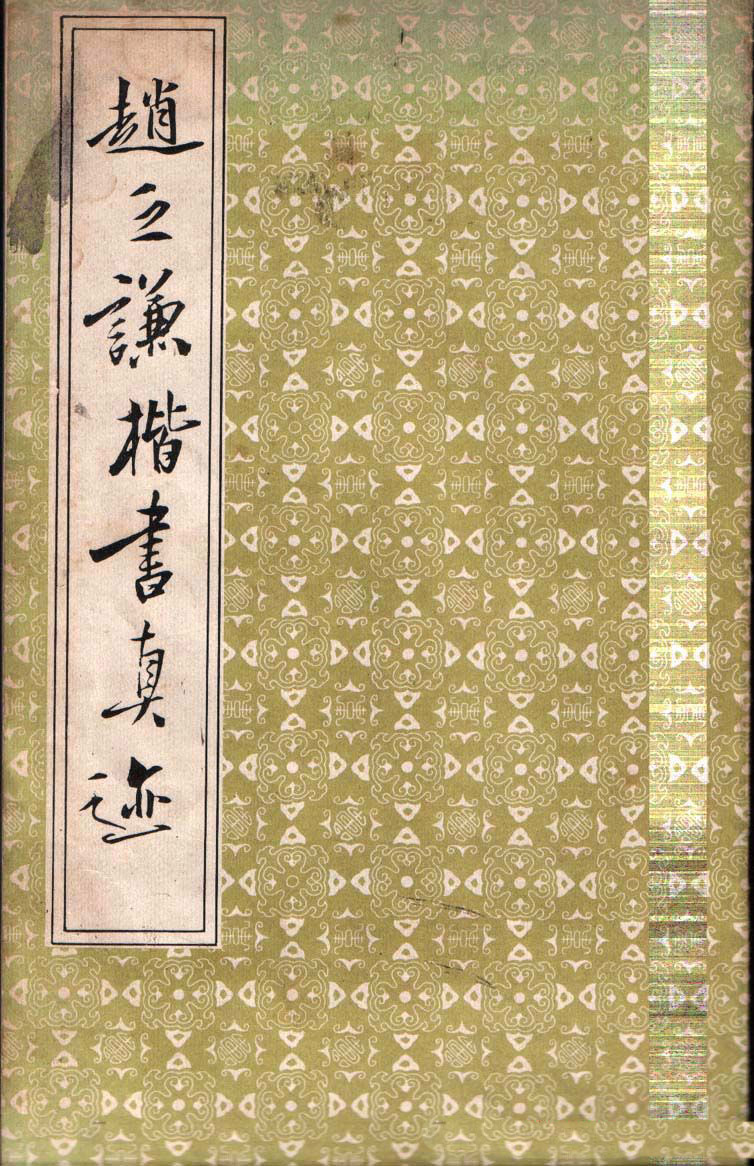 趙之謙楷書真迹